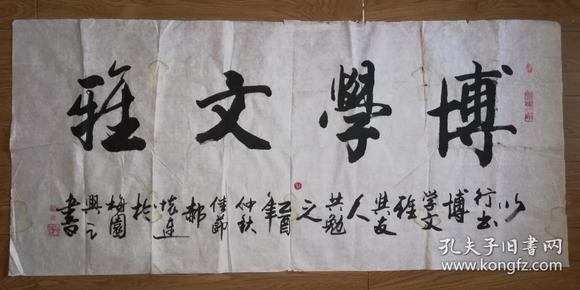 博學文雅
以
行书
博
学文
雅
与友
人
共勉
之
乙酉
年
仲秋
佳節
郝
怀连
於
梅園
興之
書
孔夫子旧书网
www.kongfz.com